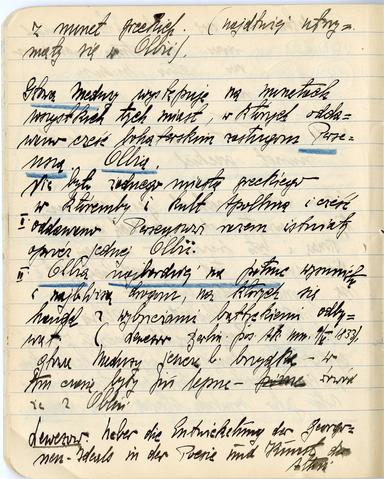 z monet greckich. (najdłużej utrzy=
mały się w Olbii).
Głowa Meduzy występuje na monetach
wszystkich tych miast, w których odda=
wano cześć bohaterskim zasługom Perse=
usza. Olbia.
Nie było żadnego miasta greckiego
w którem by i kult Apollina i cześć
I oddawano Perseuszi razem istniały
oprócz jednej Olbii.
II Olbia najbardziej na północ wysunięta
i najbliższa drogom, na których się
handel z wybrzeżami bałtyckiemi odby=
wał (Levezow Berlin. pos. Ak. 1833)
głowa Meduzy jeszcze b. brzydka – w
tym czasie były już lepsze –
że z Olbii
Levezow. Ueber die Entwickelung des Gorgo=
nen-Ideals in der Poesie und Kunst der
Alten